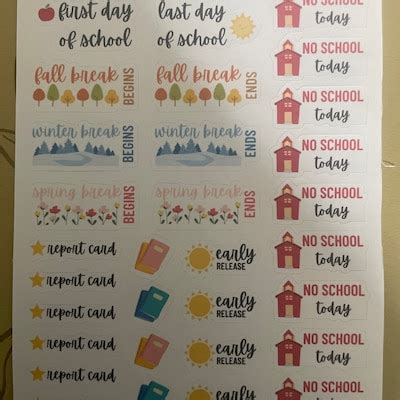 first day
of school
last day
of school
NO SCHOOL
today
fall break
BEGINS
fall break
ENDS
NO SCHOOL
today
NO SCHOOL
today
winter break
BEGINS
winter break
ENDS
NO SCHOOL
today
spring break
BEGINS
spring break
ENDS
NO SCHOOL
today
report card
early
RELEASE
NO SCHOOL
today
report card
early
RELEASE
NO SCHOOL
today
report card
early
RELEASE
NO SCHOOL
today
report card
report card
early
NO SCHOOL
today